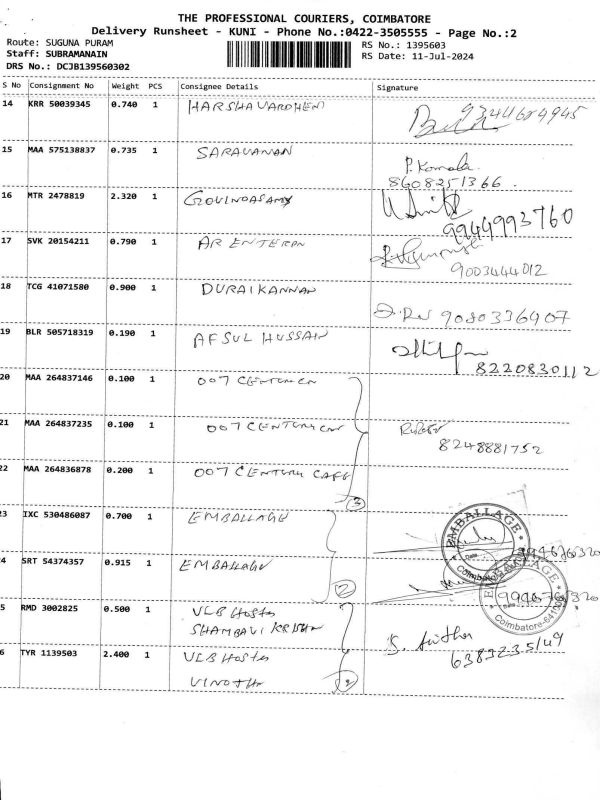 THE PROFESSIONAL COURIERS, COIMBATORE
Delivery Runsheet - KUNI - Phone No.:0422-3505555 - Page No.:2
Route: SUGUNA PURAM
RS No.: 1395603
Staff: SUBRAMANAIN
RS Date: 11-Jul-2024
DRS No.: DCJB139560302
S No Consignment No Weight PCS Consignee Details Signature
14 KRR 50039345 0.740 1 HARSHAVARDHENI
15 MAA 575138837 0.735 1 SARAVANAN P. Komala
8608251366
16 MTR 2478819 2.320 1 GOVINDASAMY
9944993760
17 SVK 20154211 0.790 1 AR ENTERPN
9003444012
18 TCG 41071580 0.900 1 DURAIKANNAN
9080336907
19 BLR 505718319 0.190 1 AFSUL HUSSAIN
8220830112
20 MAA 264837146 0.100 1 007 CENTURY CN
21 MAA 264837235 0.100 1 007 CENTURY CN
8248881752
22 MAA 264836878 0.200 1 007 CENTURY CAFE
3
23 IXC 530486087 0.700 1 EMBALLAGE EMBALLAGE
Coimbatore
24 SRT 54374357 0.915 1 EMBALLAGE EMBALLAGE
2
Coimbatore-641
5 RMD 3002825 0.500 1 VLB Hostel
SHAMBAVI KRISHN
6 TYR 1139503 2.400 1 VLB Hostel
VINOTH
2